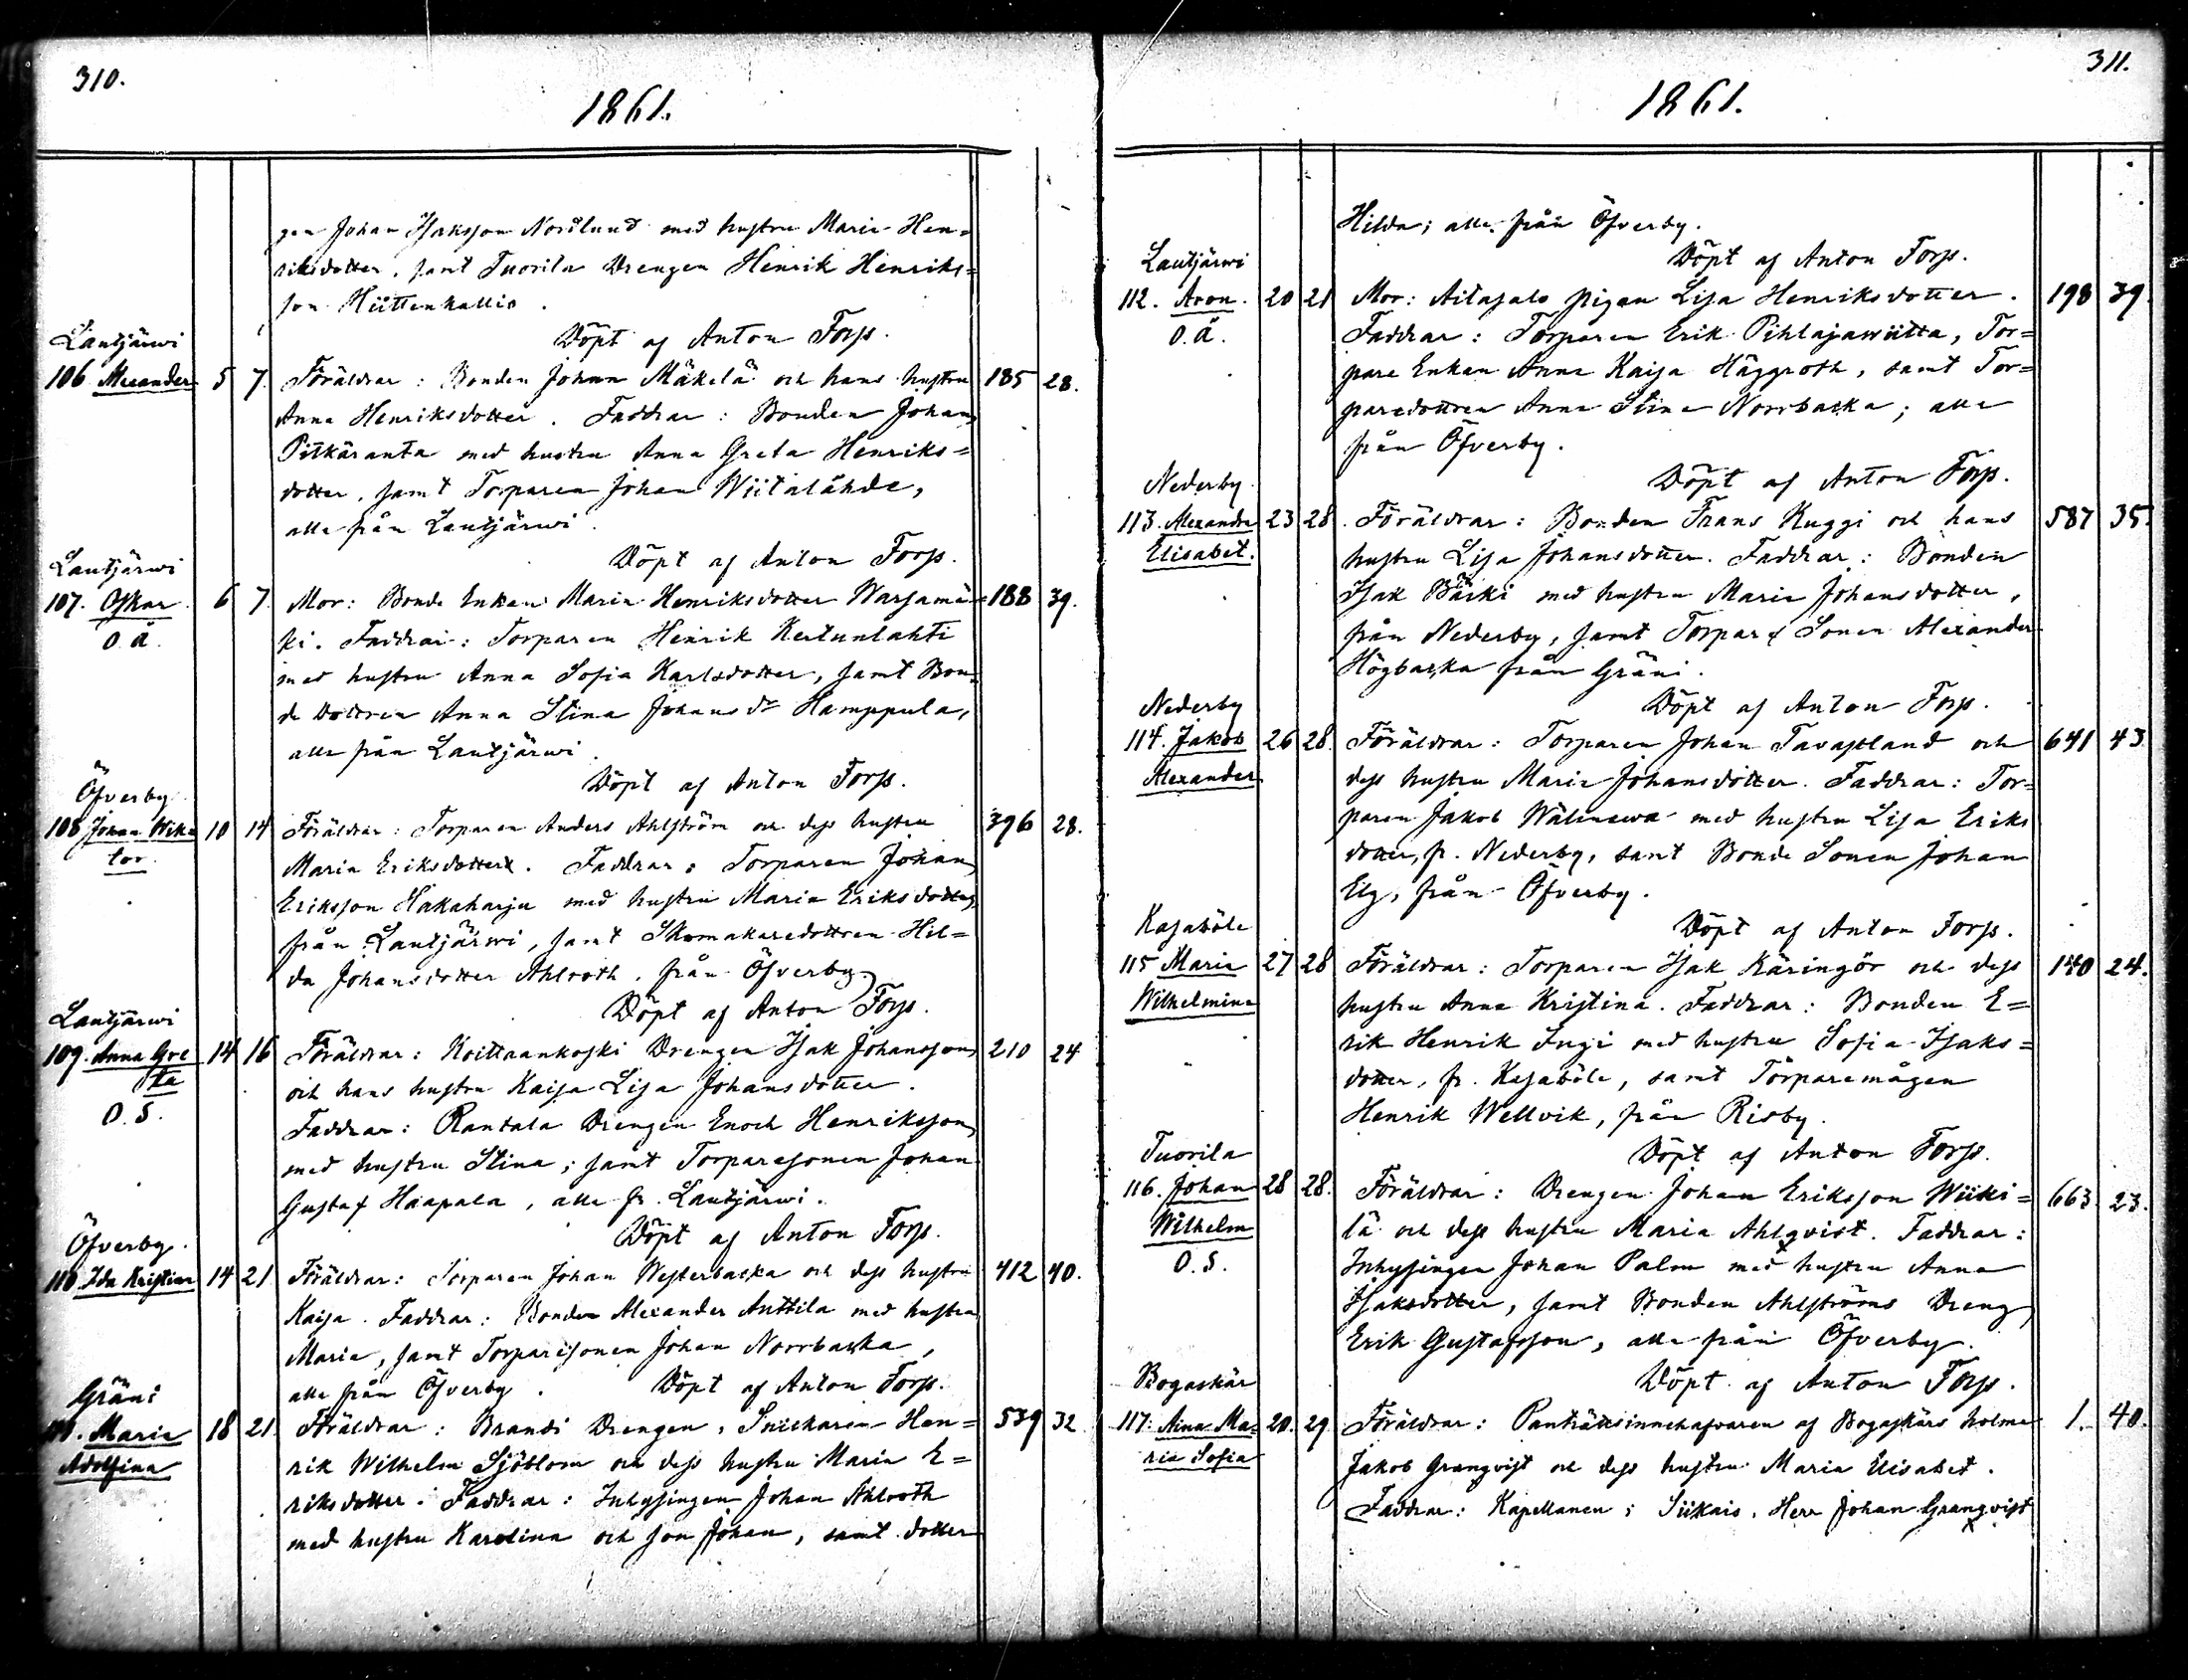 310.
1861.
gen Johan Isaksson Nordlund med hustru Maria Hen=
riksdotter, samt Tuorila Drengen Henrik Henriks=
son Hiittenkallio.
Döpt af Anton Forss.
Lautjärwi
106 Alexander 5 7 Föräldrar: Bonden Johan Mäkelä och hans hustru 185 28.
Anna Henriksdotter. Faddrar: Bonden Johan
Pitkäranta med hustru Anna Greta Henriks=
dotter, samt Torparen Johan Wiitalähde,
alla från Lautjärwi.
Döpt af Anton Forss.
Lautjärwi
107. Oskar 6 7 Mor: Bonde Enkan Maria Henriksdotter Warjamä= 188 39.
O.ä. ki. Faddrar: Torparen Henrik Kertunlahti
med hustru Anna Sofia Karlsdotter, samt Bon=
de Dottren Anna Stina Johans dr Hamppula,
alla från Lautjärwi.
Döpt af Anton Forss.
Öfverby
108 Johan Wik= 10 14 Föräldrar: Torparen Anders Ahlström och dess hustru 396 28.
tor Maria Eriksdotter. Faddrar: Torparen Johan
Eriksson Hakaharju med hustru Maria Eriksdotter,
från Lautjärwi, samt Skomakaredottren Hil=
da Johansdotter Ahlroth, från Öfverby.
Döpt af Anton Forss.
Lautjärwi
109. Anna Gre 14 16 Föräldrar: Koittaankoski Drengen Isak Johansson 210 24
ta och hans hustru Kaisa Lisa Johansdotter.
O.S. Faddrar: Rantala Drengen Enoch Henriksson
med hustru Stina; samt Torparesonen Johan
Gustaf Haapala, alla fr. Lautjärwi.
Döpt af Anton Forss.
Öfverby.
110. Ida Kristina 14 21 Föräldrar: Torparen Johan Westerbacka och dess hustru 412 40.
Kaisa. Faddrar: Bonden Alexander Anttila med hustru
Maria, samt Torparesonen Johan Norrbacka,
alla från Öfverby. Döpt af Anton Forss.
Gräni
111. Maria 18 21 Föräldrar: Brandi Drengen, Snickaren Hen= 539 32
Adolfina rik Wilhelm Sjöblom och dess hustru Maria E=
riksdotter. Faddrar: Inhysingen Johan Ahlroth
med hustru Karolina och son Johan, samt dotter
311.
1861.
Hilda; alla från Öfverby.
Döpt af Anton Forss.
Lautjärwi
112. Aron. 20 21 Mor: Aitasalo pigan Lisa Henriksdotter. 198 39
O.ä. Faddrar: Torparen Erik Pihlajawiitta, Tor=
pare Enkan Anna Kaisa Häggroth, samt Tor=
paredottren Anna Stina Norrbacka; alla
från Öfverby.
Döpt af Anton Forss.
Nederby
113. Alexandra 23 28. Föräldrar: Bonden Frans Kuggi och hans 587 35
Elisabet. hustru Lisa Johansdotter. Faddrar: Bonden
Isak Bäcki med hustru Maria Johansdotter,
från Nederby, samt Torpare Sonen Alexander
Högbacka från Gräni.
Döpt af Anton Forss.
Nederby
114. Jakob 26 28. Föräldrar: Torparen Johan Tavastland och 641 43
Alexander dess hustru Maria Johansdotter. Faddrar: Tor=
paren Jakob Wälinewa med hustru Lisa Eriks
dotter, fr. Nederby, samt Bonde Sonen Johan
Elg, från Öfverby.
Döpt af Anton Forss.
Kasaböle
115 Maria 27 28 Föräldrar: Torparen Isak Käringör och dess 140 24.
Wilhelmina hustru Anna Kristina. Faddrar: Bonden E=
rik Henrik Ingi med hustru Sofia Isaks=
dotter, fr. Kasaböle, samt Torparemågen
Henrik Wellvik, från Risby.
Döpt af Anton Forss.
Tuorila
116. Johan 28 28. Föräldrar: Drengen Johan Eriksson Wiiki= 663 23.
Wilhelm lä och dess hustru Maria Ahlqvist. Faddrar:
O.S. Inhysingen Johan Palm med hustru Anna
Isaksdotter, samt Bonden Ahlströms Dreng
Erik Gustafsson, alla från Öfverby.
Döpt af Anton Forss.
Bogaskär
117. Aina Ma= 20. 29 Föräldrar: Panträttsinnehafvaren af Bogaskärs holme 1. 40.
ria Sofia Jakob Granqvist och dess hustru Maria Elisabet.
Faddrar: Kapellanen i Siikais, Herr Johan Granqvist